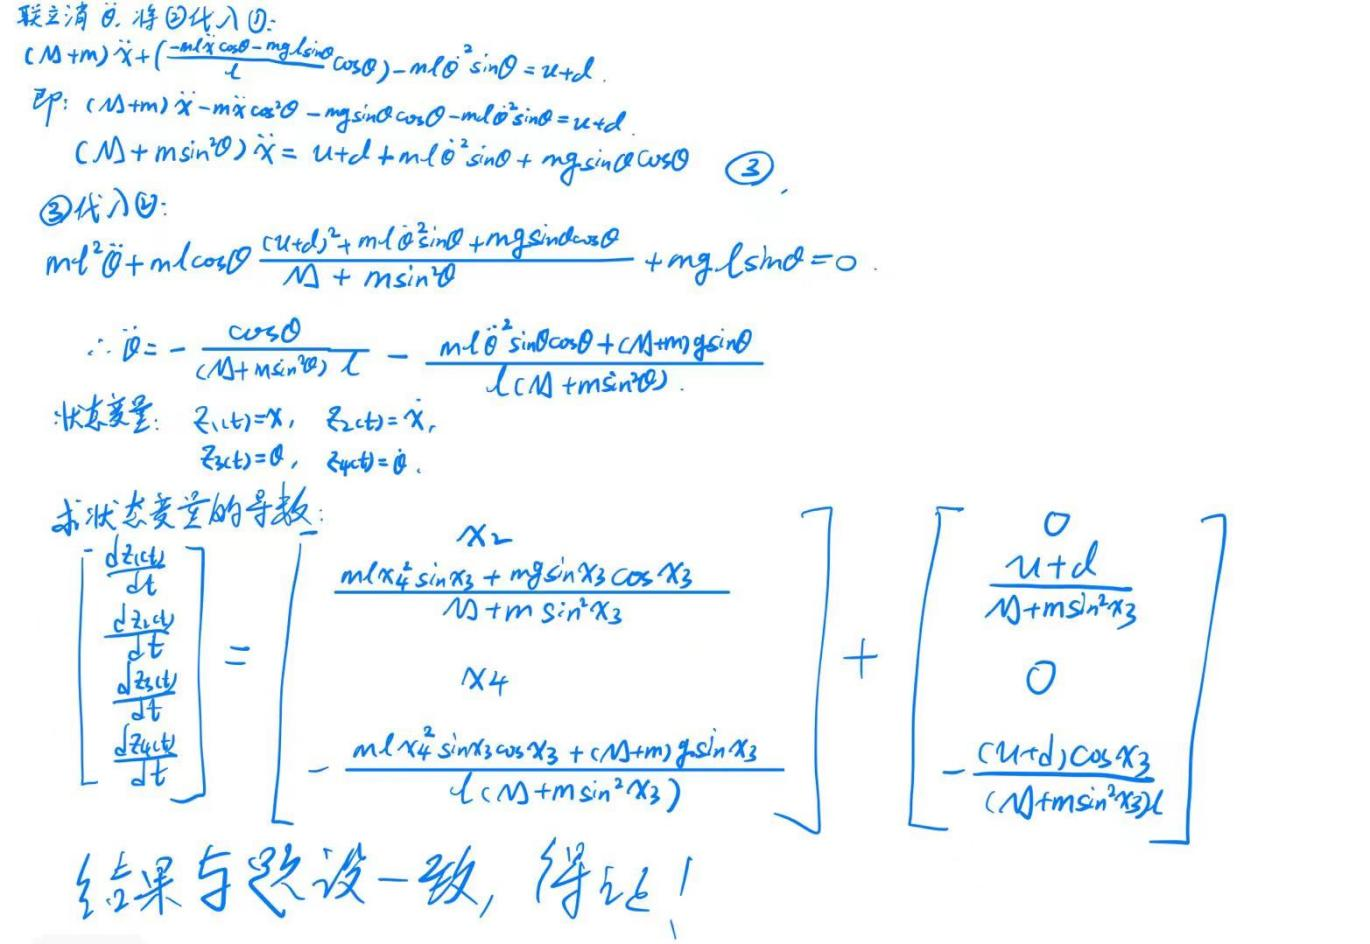 联立消 θ̈. 将②代入①:
(M+m)ẍ+(\frac{-mlẍcosθ-mglsinθ}{l}cosθ)-mlθ̇²sinθ=u+d.
即: (M+m)ẍ-mẍcos²θ-mgsinθcosθ-mlθ̇²sinθ=u+d.
(M+msin²θ)ẍ=u+d+mlθ̇²sinθ+mgsinθcosθ ③.
③代入②:
ml²θ̈+mlcosθ\frac{(u+d)²+mlθ̇²sinθ+mgsinθcosθ}{M+msin²θ}+mglsinθ=0.
∴θ̈=-\frac{cosθ}{(M+msin²θ)l}-\frac{mlθ̈²sinθcosθ+(M+m)gsinθ}{l(M+msin²θ)}.
状态变量: z₁(t)=x, z₂(t)=ẋ,
z₃(t)=θ, z₄(t)=θ̇.
求状态变量的导数:
[\frac{dz₁(t)}{dt} \frac{dz₂(t)}{dt} \frac{dz₃(t)}{dt} \frac{dz₄(t)}{dt}] = [x₂ \frac{mlx₄²sinx₃+mgsinx₃cosx₃}{M+msin²x₃} x₄ -\frac{mlx₄²sinx₃cosx₃+(M+m)gsinx₃}{l(M+msin²x₃)}] + [0 \frac{u+d}{M+msin²x₃} 0 -\frac{(u+d)cosx₃}{(M+msin²x₃)l}]
结果与题设一致, 得证!